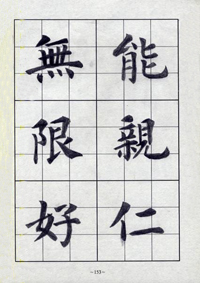 能親仁
無限好
~153~